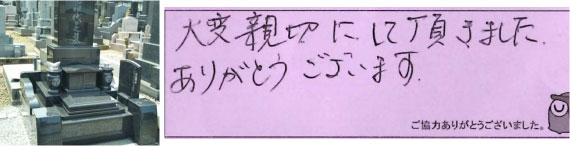 大変親切にして頂きました.
ありがとうございます.
ご協力ありがとうございました。